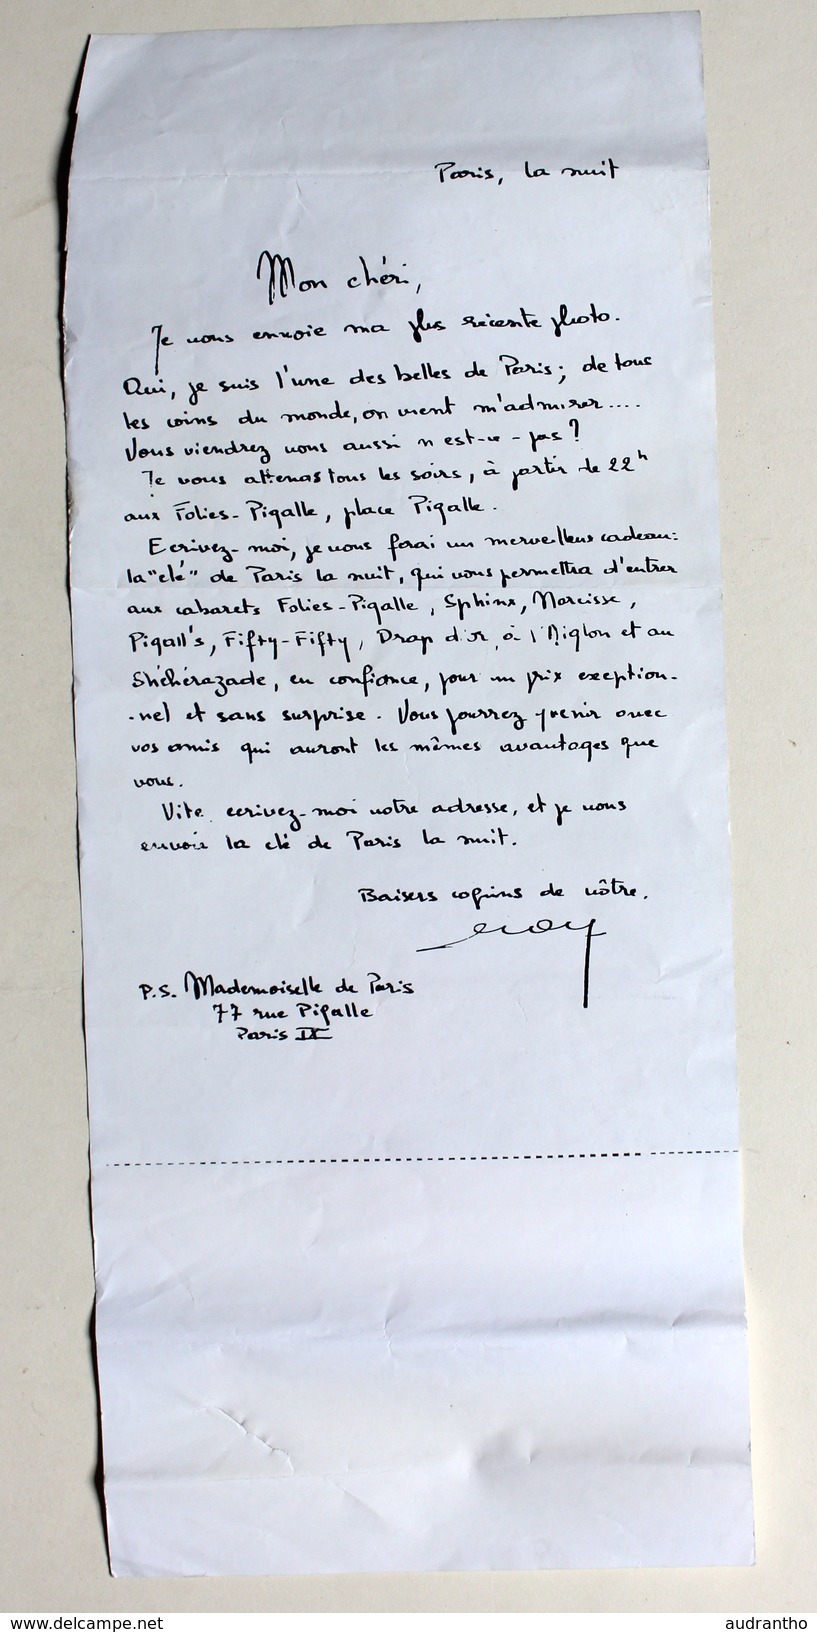 Paris, la nuit
Mon chéri,
Je vous envoie ma plus récente photo.
Oui, je suis l'une des belles de Paris; de tous
les coins du monde, on vient m'admirer....
Vous viendrez vous aussi n'est-ce-pas?
Je vous attends tous les soirs, à partir de 22h
aux Folies-Pigalle, place Pigalle.
Ecrivez-moi, je vous ferai un merveilleux cadeau:
la "clé" de Paris la nuit, qui vous permettra d'entrer
aux cabarets Folies-Pigalle, Sphinx, Narcisse,
Pigall's, Fifty-Fifty, Drap d'or, à l'Aiglon et au
Shéhérazade, en confiance, pour un prix exception-
-nel et sans surprise. Vous pourrez venir avec
vos amis qui auront les mêmes avantages que
vous.
Vite ecrivez-moi votre adresse, et je vous
envoie la clé de Paris la nuit.
Baisers coquins de vôtre.
P.S. Mademoiselle de Paris
77 rue Pigalle
Paris IX
www.delcampe.net
audrantho